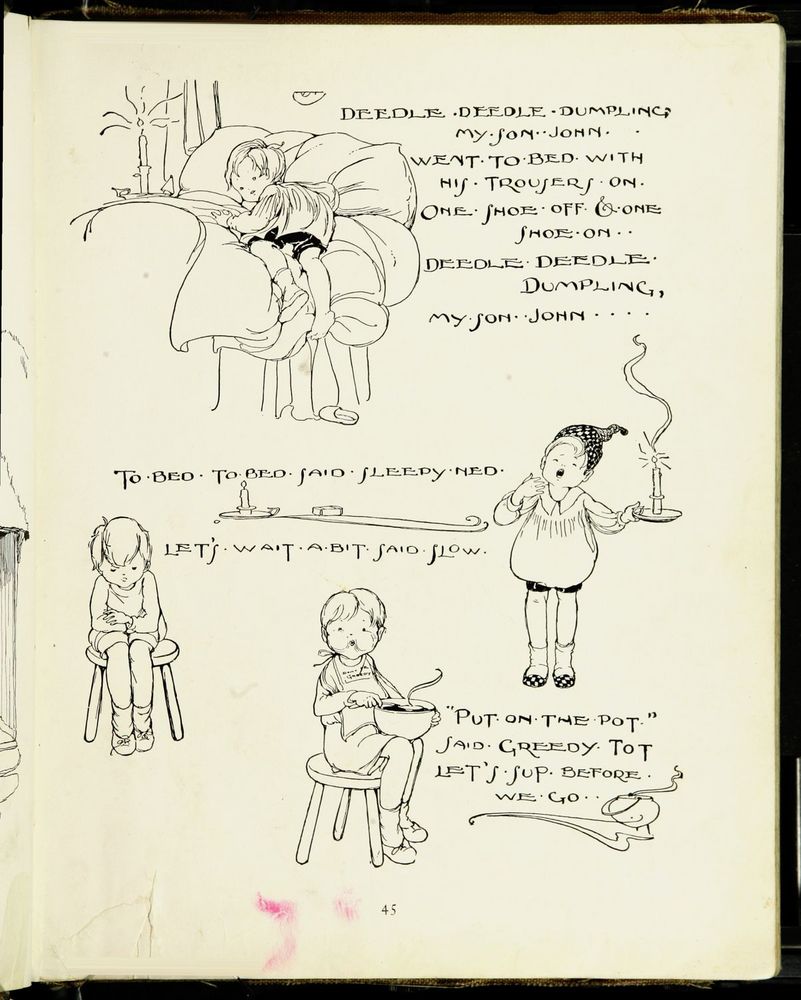 DEEDLE · DEEDLE · DUMPLING,
MY · SON · · JOHN · ·
WENT · TO · BED · WITH
HIS · TROUSERS · ON ·
ONE · SHOE · OFF · & · ONE
SHOE · ON · ·
DEEDLE · DEEDLE ·
DUMPLING,
MY · SON · · JOHN · · · ·
TO · BED · TO · BED · SAID · SLEEPY · NED ·
LET'S · WAIT · A · BIT · SAID · SLOW ·
"PUT · ON · THE · POT · "
SAID · GREEDY · TOT
LET'S · SUP · BEFORE ·
WE · GO · ·
45